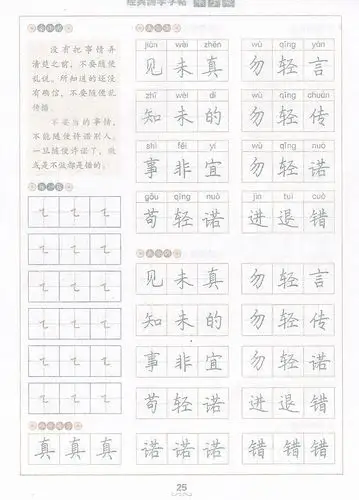 经典国学字帖
没有把事情弄
清楚之前，不要随便
乱说。所知道的还没
有确信，不要随便乱
传播。
不妥当的事情，
不能随便许诺别人。
一旦随便许诺了，做
或是不做都是错的。
jiàn wèi zhēn
见未真
wù qīng yán
勿轻言
zhī wèi dí
知未的
wù qīng chuán
勿轻传
shì fēi yí
事非宜
wù qīng nuò
勿轻诺
gǒu qīng nuò
苟轻诺
jìn tuì cuò
进退错
见未真 勿轻言
知未的 勿轻传
事非宜 勿轻诺
苟轻诺 进退错
真真真 诺诺诺 错错错
25